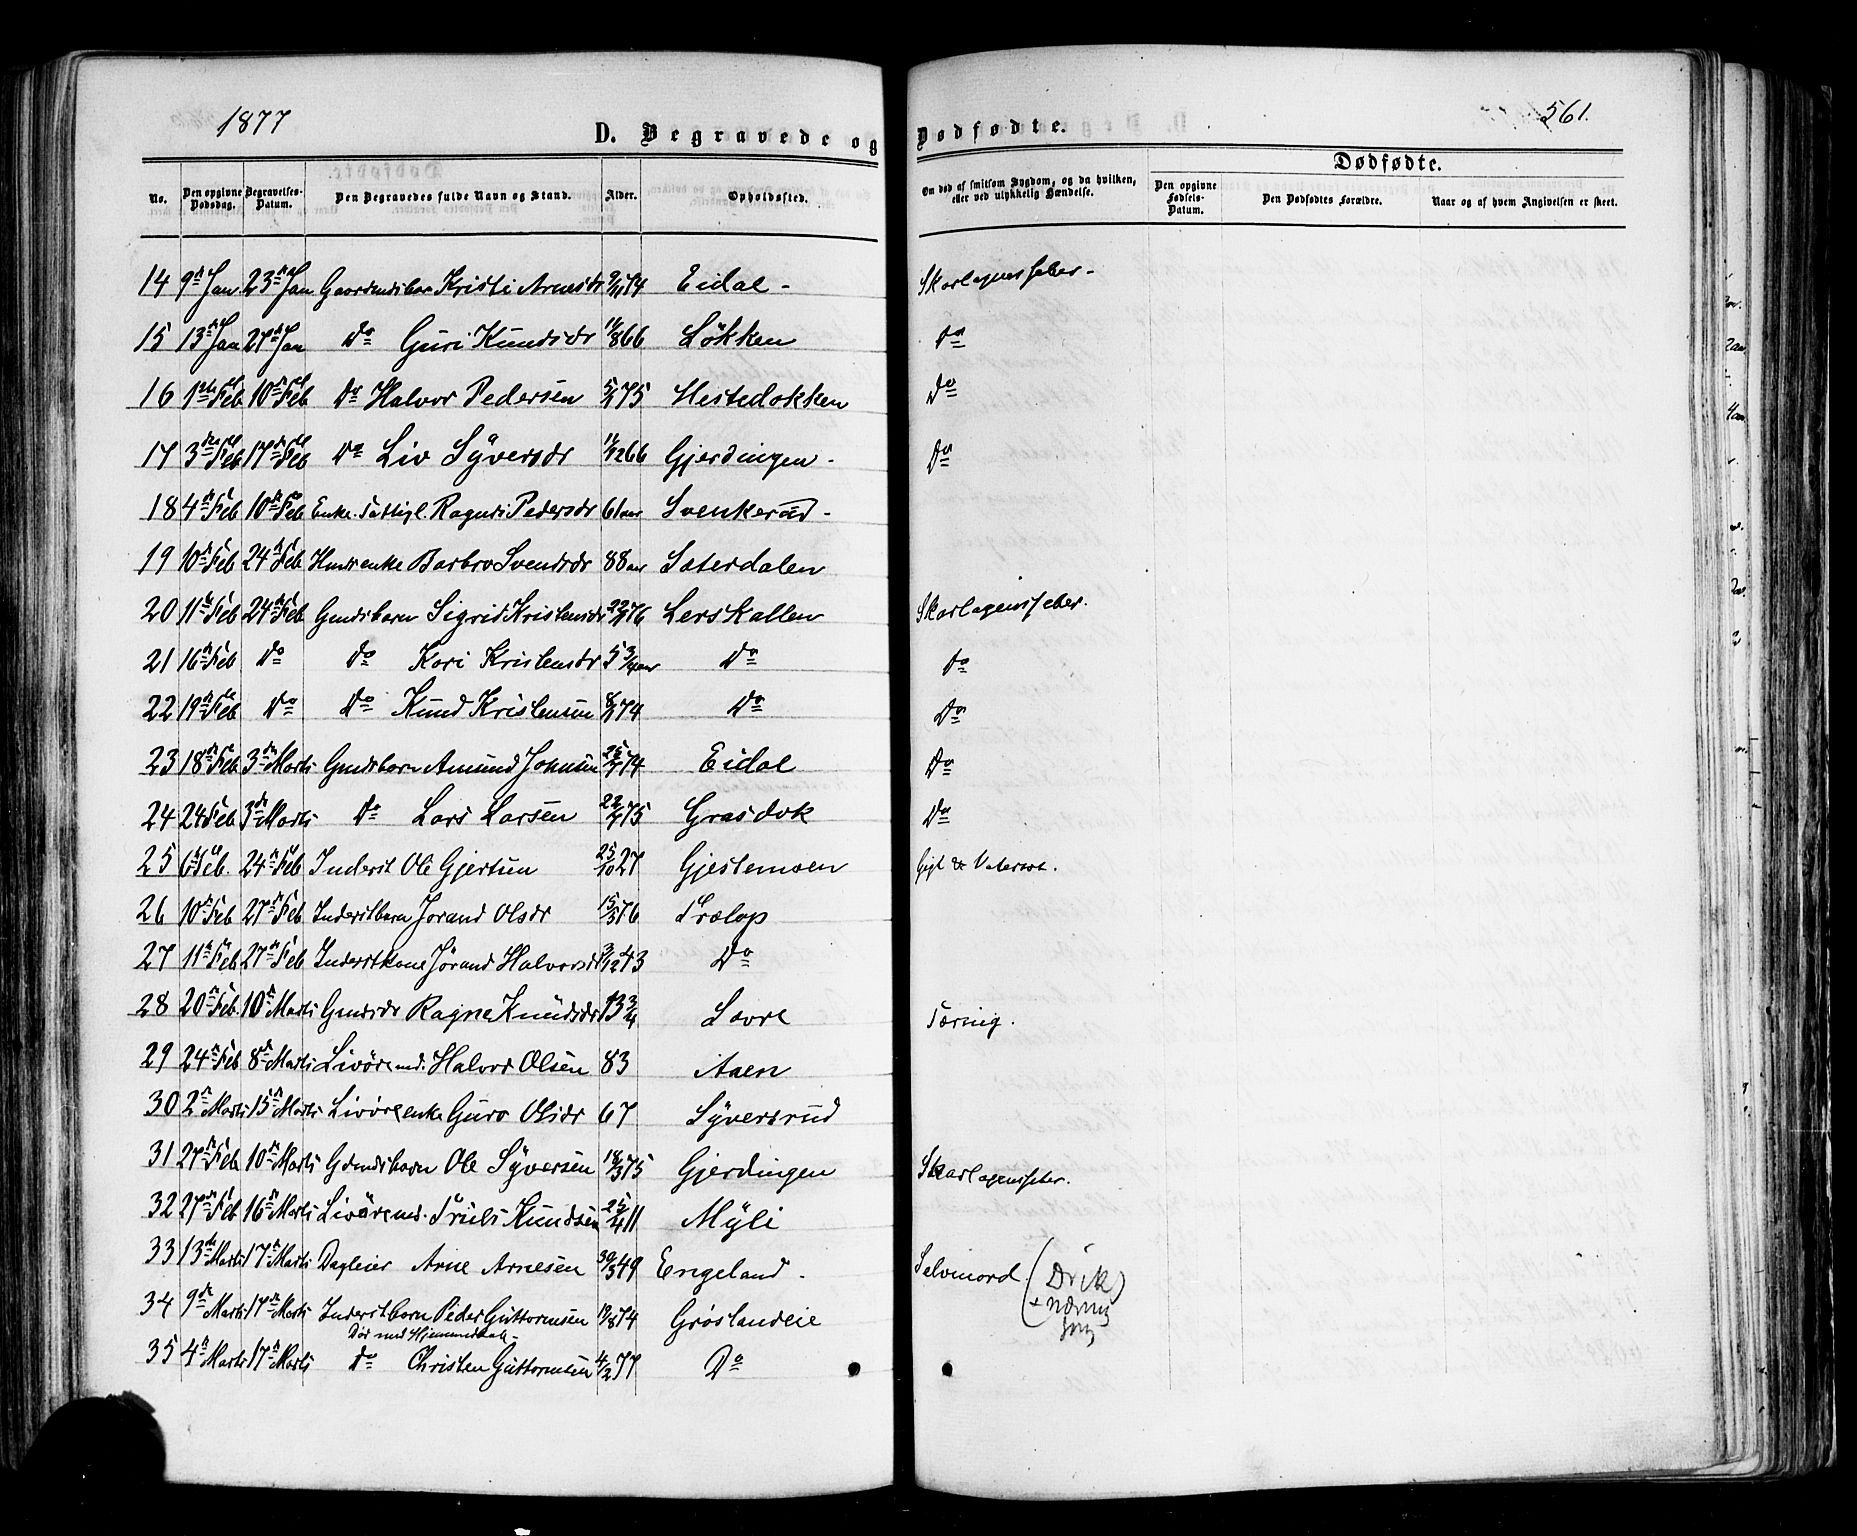 1877
D. Begravede og Dødfødte.
561.
Dødfødte.
No. Den opgivne Dødsdag. Begravelses-Datum. Den Begravedes fulde Navn og Stand. Alder. Opholdssted. Om død af smitsom Sygdom, og da hvilken, eller ved ulykkelig Hændelse. Den opgivne Fødsels-Datum. Den Dødfødtes Forældre. Naar og af hvem Angivelsen er skeet.
14 9de Jan 23de Jan Kristi Arnesdr 74 Eidal - Skarlagensfeber -
15 13de Jan 27de Jan Do Guri Knudsdr 11/8 66 Løkken Do
16 1ste Feb 10de Feb Do Halvor Pedersen 75 Hestedokken Do
17 3die Feb 17de Feb Do Liv Syversdr 11/12 66 Gjerdingen - Do
18 4de Feb 10de Feb Enke. Fattigl. Ragndi Pedersdr 61 aar Svenkerud -
19 10de Feb 24de Feb enke Barbro Svendsdr 88 aar Sæterdalen
20 11te Feb 24de Feb Gmdsbarn Sigrid Kristensdr 76 Lerskallen Skarlagensfeber.
21 16de Feb Do Do Kari Kristensdr 5 3/4 aar Do Do
22 19de Feb Do Do Knud Kristensen 74 Do Do
23 18de Feb 3die Marts Gmdsbarn Amund Johnsen 74 Eidal Do
24 24 Feb 3die Marts Do Lars Larsen 75 Grasdok Do
25 6te Feb. 24de Feb Inderst Ole Gjertsen 25/10 27 Gjestemoen Gigt & Vatersot.
26 10de Feb 27de Feb Inderstbarn Jørand Olsdr 15/3 76 Trælop
27 11te Feb 27de Feb Inderstkone Jørand Halvorsdr 3/12 43 Do
28 20de Feb. 10de Marts Gmdsdr Ragne Knudsdr 13 3/4 Sevre Tæring.
29 24de Feb 8de Marts Livøremd. Halvor Olsen 83 Aaen
30 2den Marts 15de Marts Livøreenke Guro Olsdr 67 Syversrud
31 27de Feb 10de Marts Gmdsbarn Ole Syversen 18/3 75 Gjerdingen Skarlagensfeber.
32 27de Feb 16de Marts Livøremd. Truls Knudsen 25/4 11 Myli
33 13de Marts 17de Marts Dagleier Arne Arnesen 30/3 49 Engeland - Selvmord (Drik + nærings sorg)
34 9de Marts 17de Marts Inderstbarn Peder Guttormsen 19/8 74 Grøslandeie
Dør med Hjemmedaab -
35 4de Marts 17de Marts Do Christen Guttormsen 4/2 77 Do